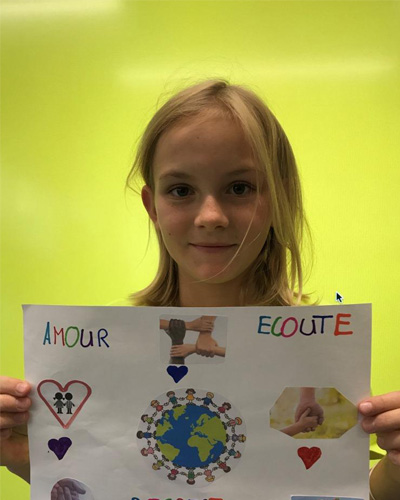 AMOUR
ECOUTE